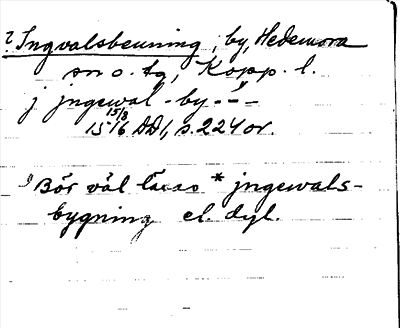 ? Ingvalsbenning, by, Hedemora
sn o. tg, Kopp. l.
j jngewal - by - - -
15/8 1516 DD1, s. 224 or.
1) Bör väl läsas * jngewals-
bygning el. dyl.